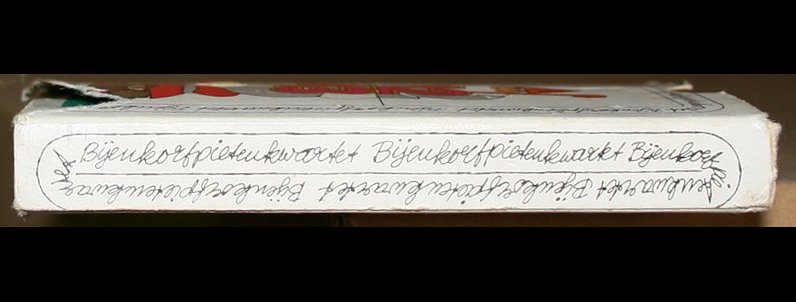 Bijenkorfpietenkwartet Bijenkorfpietenkwartet Bijenkorfpie
tenkwartet Bijenkorfpietenkwartet Bijenkorfpietenkwartet